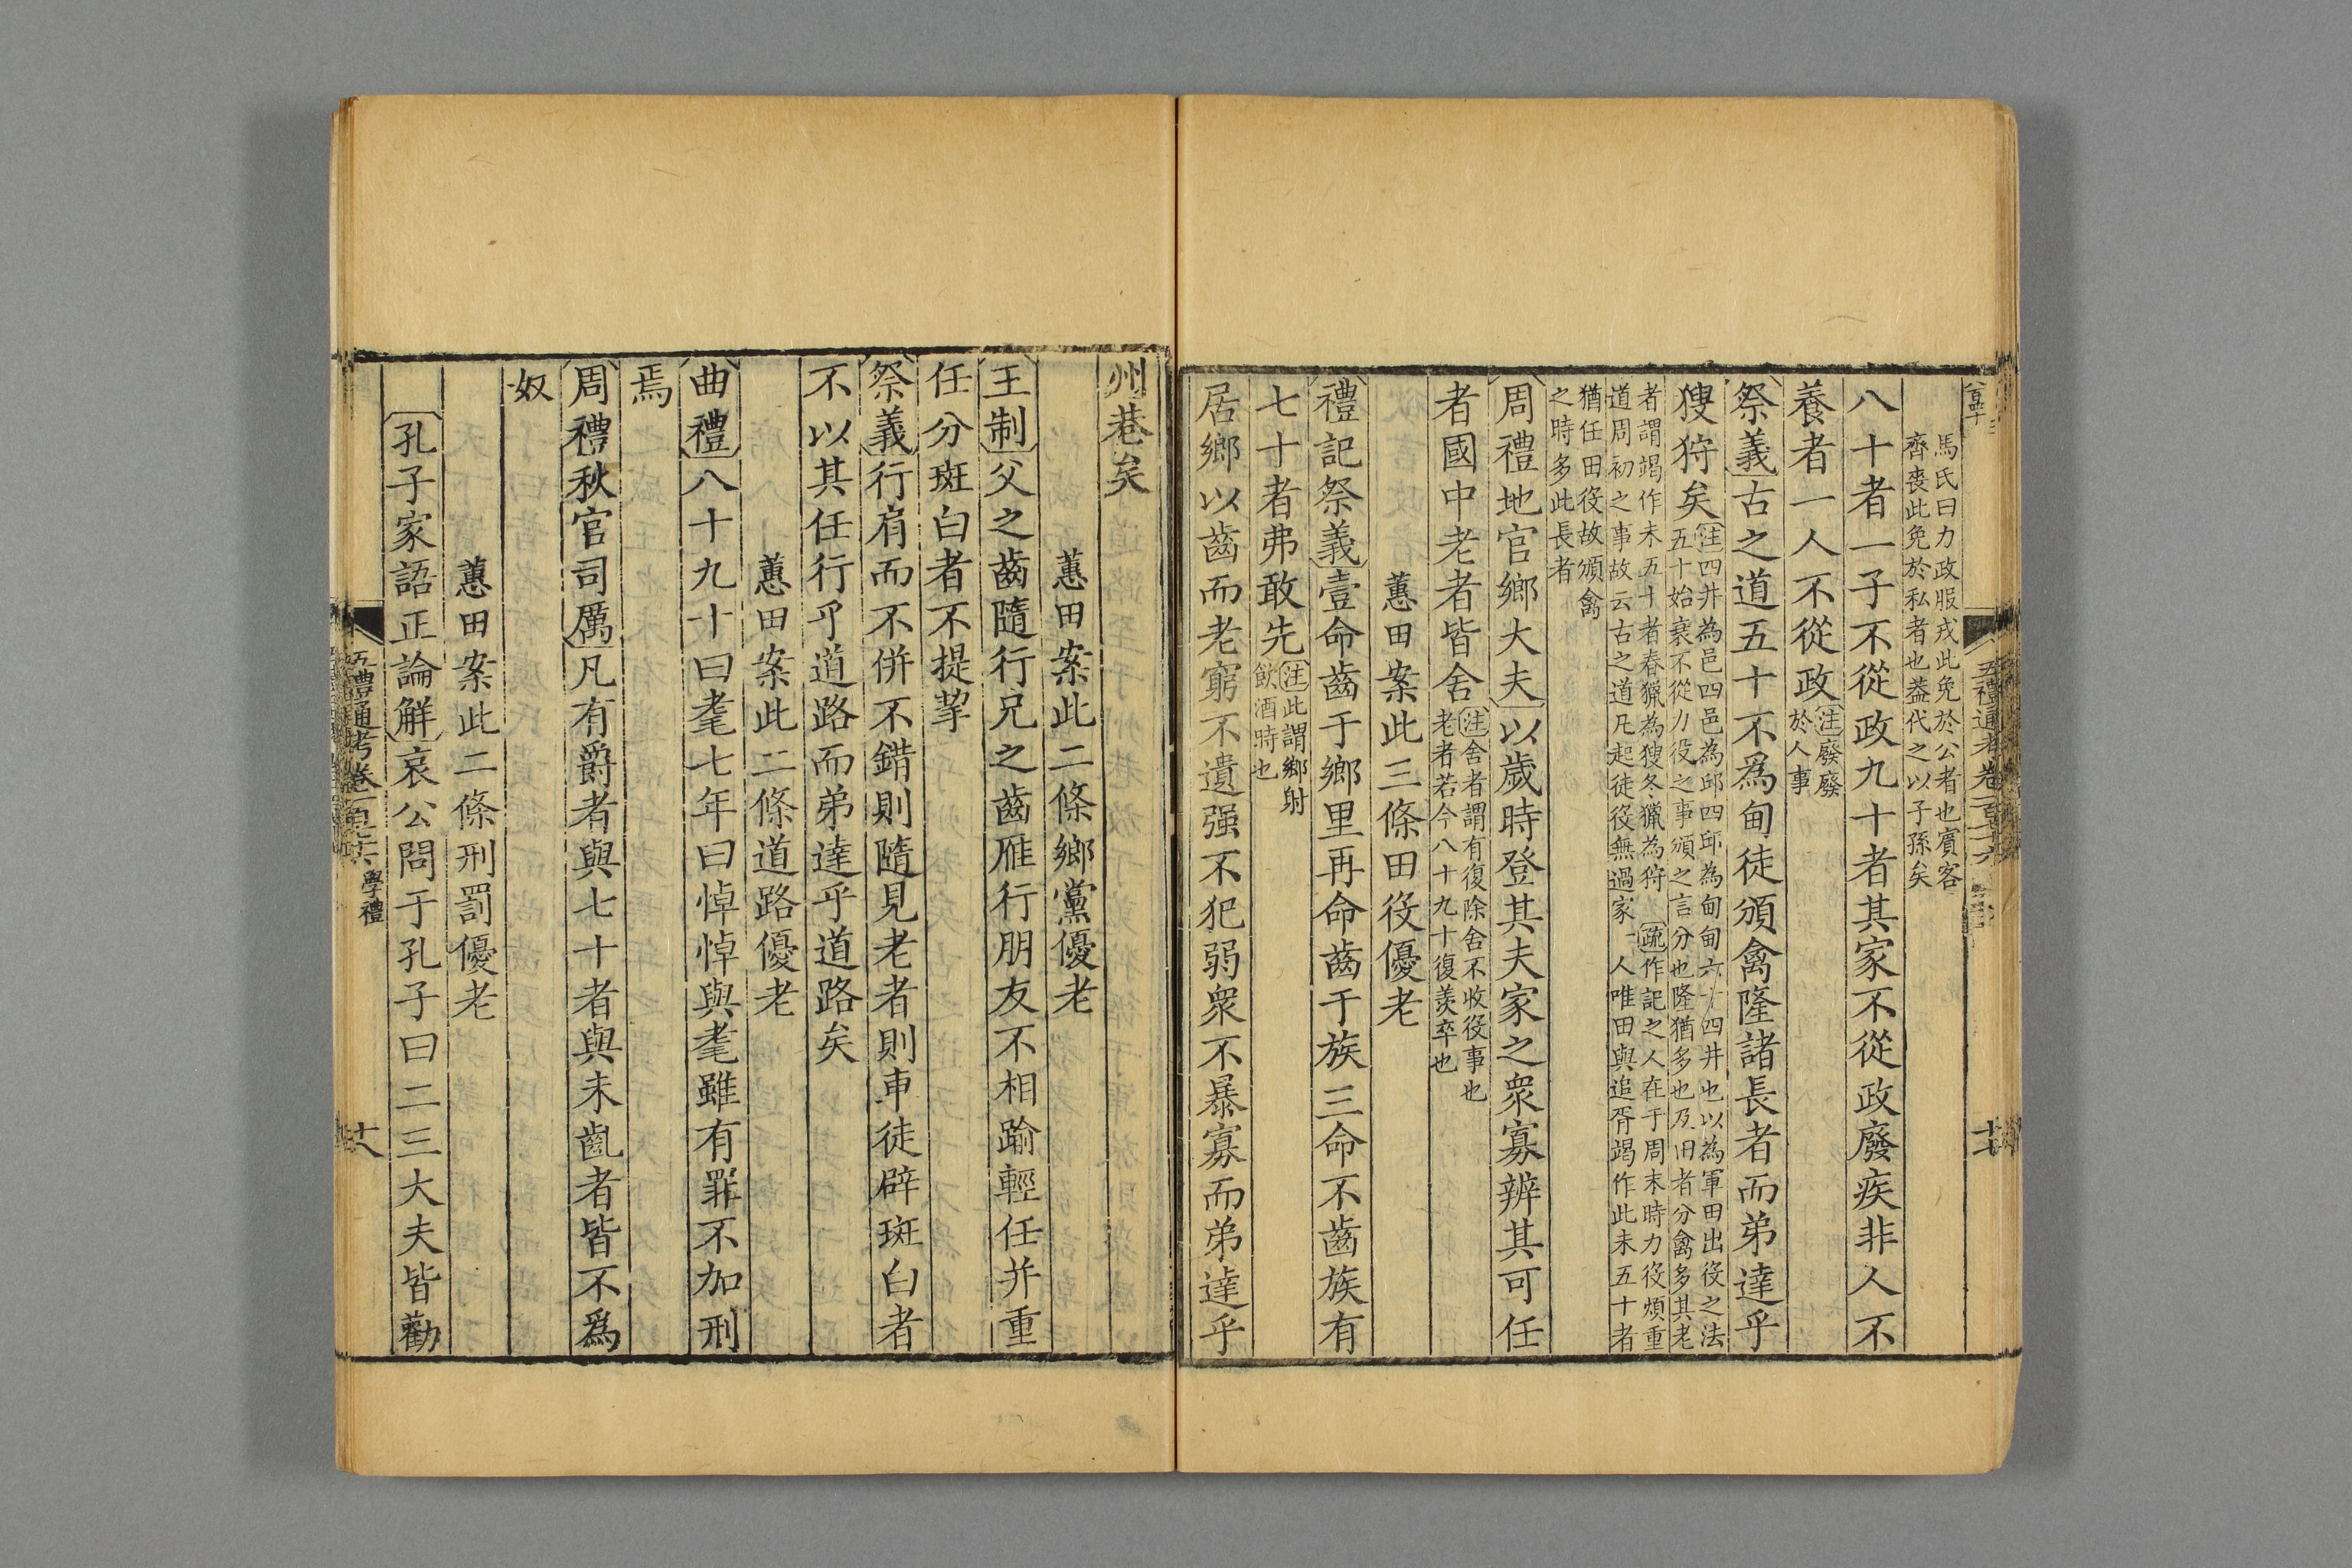 馬氏曰力政服戎此免於公者也賓客
齊喪此免於私者也葢代之以子孫矣
八十者一子不從政九十者其家不從政廢疾非人不
養者一人不從政注廢廢
於人事
祭義古之道五十不爲甸徒頒禽隆諸長者而弟達乎
獀狩矣注四井為邑四邑為邱四邱為甸甸六十四井也以為軍田出役之法
五十始衰不從力役之事頒之言分也隆猶多也及田者分禽多其老
者謂竭作未五十者春獵為獀冬獵為狩　疏作記之人在于周末時力役煩重
道周初之事故云古之道凡起徒役無過家一人唯田與追胥竭作此未五十者
猶任田役故頒禽
之時多此長者
周禮地官鄉大夫以歲時登其夫家之衆寡辨其可任
者國中老者皆舍注舍者謂有復除舍不收役事也
老者若今八十九十復羨卒也
蕙田案此三條田役優老
禮記祭義壹命齒于鄉里再命齒于族三命不齒族有
七十者弗敢先注此謂鄉射
飲酒時也
居鄉以齒而老窮不遺强不犯弱衆不暴寡而弟達乎
五禮通考卷一百七十六
十七
州巷矣
蕙田案此二條鄉黨優老
王制父之齒隨行兄之齒雁行朋友不相踰輕任并重
任分斑白者不提挈
祭義行肩而不併不錯則隨見老者則車徒辟斑白者
不以其任行乎道路而弟達乎道路矣
蕙田案此二條道路優老
曲禮八十九十曰耄七年曰悼悼與耄雖有罪不加刑
焉
周禮秋官司厲凡有爵者與七十者與未齔者皆不爲
奴
蕙田案此二條刑罰優老
孔子家語正論解哀公問于孔子曰二三大夫皆勸
五禮通考卷一百七十六　學禮
十八